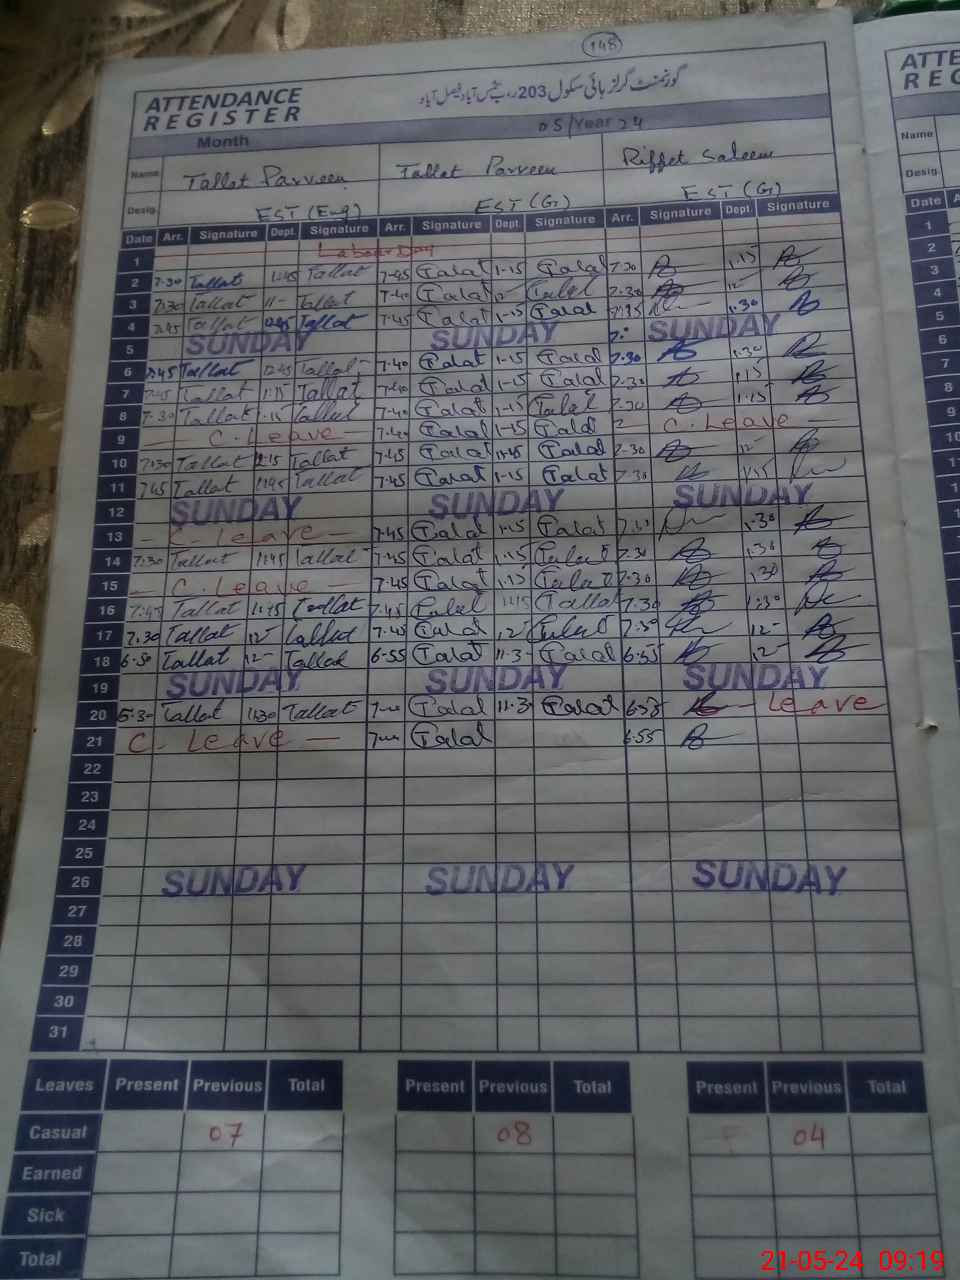 148
ATTENDANCE REGISTER
گورنمنٹ گرلز ہائی سکول 203 فیصل آباد
Month 05/Year 24
Name Tallat Parveen Tallat Parveen Riffet Saleem
Desig. EST (Eng) EST (G) EST (G)
Date Arr. Signature Dept. Signature Arr. Signature Dept. Signature Arr. Signature Dept. Signature
1 Labour Day
2 7-30 Tallat 12:45 Tallat 7-45 Talat 1-15 Talat 7-30 1-15
3 7:30 Tallat 11- Tallat 7-40 Talat 12- Talat 7-30 12-
4 7:45 Tallat 12:45 Tallat 7-45 Talat 1-15 Talat 1-30
5 SUNDAY SUNDAY SUNDAY
6 7:45 Tallat 12:45 Tallat 7-40 Talat 1-15 Talat 7-30 1-30
7 7:45 Tallat 1:15 Tallat 7-40 Talat 1-15 Talat 7-30 1-15
8 7-30 Tallat 1-15 Tallat 7-40 Talat 1-15 Talat 7-30 1-15
9 — C. Leave — 7-40 Talat 1-15 Talat — C. Leave —
10 7:30 Tallat Tallat 7-45 Talat 11-45 Talat 7-30 12-
11 7:45 Tallat Tallat 7-45 Talat 1-15 Talat 7-30
12 SUNDAY SUNDAY SUNDAY
13 — C- Leave — 7-45 Talat 1-15 Talat 7-30 1-30
14 7:30 Tallat Tallat 7-45 Talat 1-15 Talat 7-30 1-30
15 — C. Leave — 7-45 Talat 1-15 Talat 7-30 1-30
16 7:45 Tallat 11:45 Tallat 7-45 Talat 11:45 Talat 7-30 1:30
17 7.30 Tallat 12- Tallat 7-45 Talat 12- Talat 7-30 12-
18 6-50 Tallat 12- Tallat 6-55 Talat 11-3 Talat 6-55 12-
19 SUNDAY SUNDAY SUNDAY
20 Tallat 11:30 Tallat 7- Talat 11-3 Talat Leave
21 C- Leave — 7- Talat 6-55
22
23
24
25
26 SUNDAY SUNDAY SUNDAY
27
28
29
30
31
Leaves Present Previous Total Present Previous Total Present Previous Total
Casual 07 08 04
Earned
Sick
Total
ATTE
REG
Name
Desig.
Date A
1
2
3
4
5
6
7
8
9
10
21-05-24 09:19